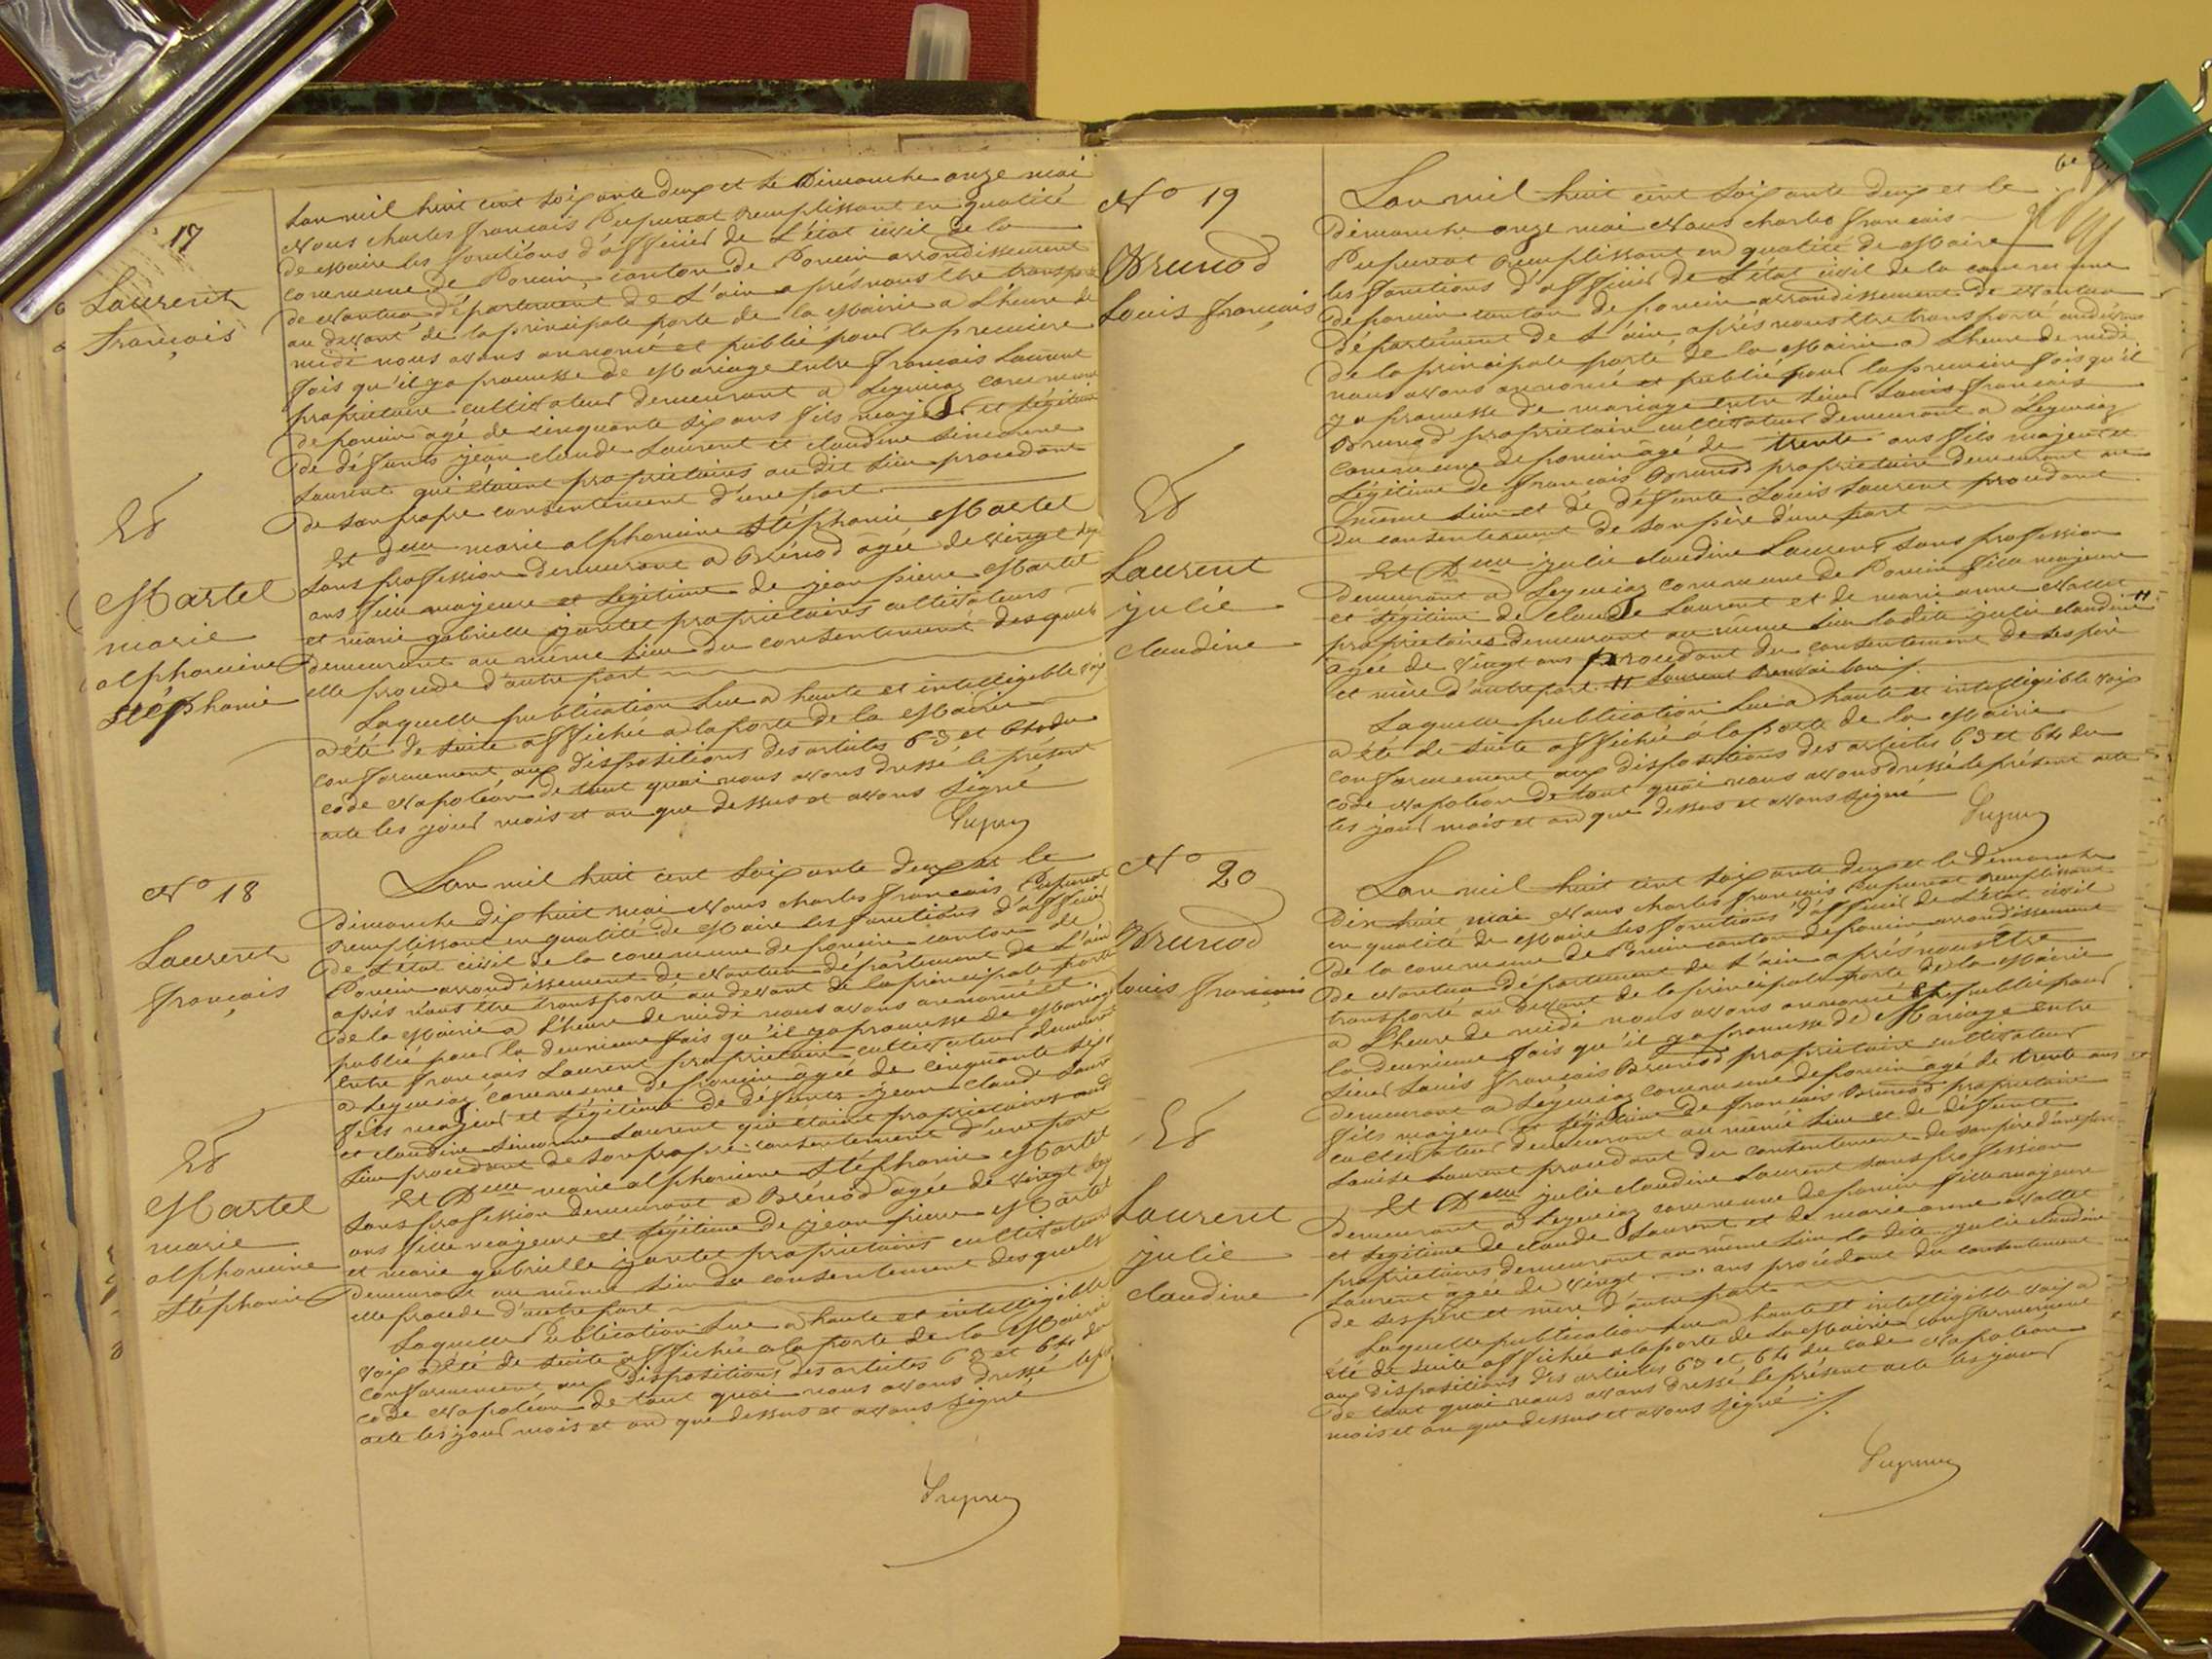 17
Laurent
francois
Et
Martel
marie
alphonsine
Stéphanie
Lan mil huit cent soixante deux et le Dimanche onze mai
Nous charles francois remplissant en qualité
de Maire les fonctions d'officier de L'état civil de la
commune de Poncin, canton de Poncin arrondissement
de Nantua département de L'ain après nous être transporté
au devant de la principale porte de la Mairie a L'heure de
midi nous avons annoncé et publié pour la premiere
fois qu'il y a promesse de Mariage entre francois Laurent
propriétaire cultivateur demeurant a Leymiaz commune
de poncin âgé de cinquante six ans fils majeur et légitime
de défunts jean claude Laurent et claudine Simonne
Laurent qui étaient propriétaires au dit lieu procédant
de son propre consentement d'une part
Et Delle marie alphonsine Stéphanie Martel
sans profession demeurant a Brénod âgée de vingt deux
ans fille majeure et légitime de jean pierre Martel
et marie gabrielle propriétaires cultivateurs
demeurant au même lieu du consentement desquels
elle procède d'autre part
Laquelle publication lue a haute et intelligible voix
a été de suite affichée a la porte de la Mairie
conformement aux dispositions des articles 63 et 64 du
code Napoléon de tout quoi nous avons dressé le présent
acte les jour mois et an que dessus et avons signé
No 18
Laurent
francois
Et
Martel
marie
alphonsine
Stéphanie
Lan mil huit cent soixante deux et le
Dimanche dix huit mai Nous charles francois
remplissant en qualité de Maire les fonctions d'officier
de L'état civil de la commune de poncin canton de
Poncin arrondissement de Nantua département de L'ain
après nous être transporté au devant de la principale porte
de la Mairie a L'heure de midi nous avons annoncé et
publié pour la deuxieme fois qu'il y a promesse de Mariage
entre francois Laurent propriétaire cultivateur demeurant
a Leymiaz commune de poncin âgé de cinquante six
fils majeur et légitime de défunts jean claud
et claudine Simonne Laurent qui étaient propriétaires audit
lieu procédant de son propre consentement d'une part
Et Delle marie alphonsine Stéphanie Martel
sans profession demeurant a Brénod âgée de vingt deux
ans fille majeure et légitime de jean pierre Martel
et marie gabrielle propriétaires cultivateurs
demeurant au même lieu du consentement desquels
elle procède d'autre part
Laquelle Publication lue a haute et intelligible
voix a été de suite affichée a la porte de la Mairie
conformement aux dispositions des articles 63 et 64 du
code Napoléon de tout quoi nous avons dressé
acte les jour mois et an que dessus et avons signé
No 19
Brunod
Louis francois
Et
Laurent
julie
claudine
Lan mil huit cent soixante deux et le
Dimanche onze mai Nous charles francois
remplissant en qualité de Maire
les fonctions d'officier de L'état civil de la commune
de poncin canton de poncin arrondissement de Nantua
département de L'ain après nous être transporté au devant
de la principale porte de la Mairie a L'heure de midi
nous avons annoncé et publié pour la premiere fois qu'il
y a promesse de mariage entre sieur Louis francois
Brunod propriétaire cultivateur demeurant a Leymiaz
commune de poncin âgé de trente ans fils majeur et
légitime de francois Brunod propriétaire demeurant au
même lieu et de défunte Louis Laurent procédant
du consentement de son père d'une part
Et Delle julie claudine Laurent sans profession
demeurant a Leymiaz commune de Poncin fille majeure
et légitime de claude Laurent et de marie anne
propriétaires demeurant au même lieu ladite julie claudine #
âgée de vingt ans procédant du consentement de ses père
et mère d'autre part. # Laurent
Laquelle publication lue a haute et intelligible voix
a été de suite affichée a la porte de la Mairie
conformement aux dispositions des articles 63 et 64 du
code Napoléon de tout quoi nous avons dressé le présent acte
les jour mois et an que dessus et avons signé
No 20
Brunod
Louis francois
Et
Laurent
julie
claudine
Lan mil huit cent soixante deux et le dimanche
Dix huit mai Nous charles francois remplissant
en qualité de Maire les fonctions d'officier de L'état civil
de la commune de Poncin canton de poncin arrondissement
de Nantua département de L'ain après nous être
transporté au devant de la principale porte de la Mairie
a L'heure de midi nous avons annoncé et publié pour
la deuxieme fois qu'il y a promesse de Mariage entre
sieur Louis francois Brunod propriétaire cultivateur
demeurant a Leymiaz commune de poncin âgé de trente ans
fils majeur et légitime de francois Brunod propriétaire
cultivateur demeurant au même lieu et de défunte
Louise Laurent procédant du consentement de son père d'une part
Et Delle julie claudine Laurent sans profession
demeurant a Leymiaz commune de poncin fille majeure
et légitime de claude Laurent et de marie anne
propriétaires demeurant au même lieu la dite julie claudine
Laurent âgée de vingt ans procédant du consentement
de ses père et mère d'autre part
Laquelle publication lue a haute et intelligible voix a
été de suite affichée a la porte de la Mairie conformement
aux dispositions des articles 63 et 64 du code Napoléon
de tout quoi nous avons dressé le présent acte les jour
mois et an que dessus et avons signé